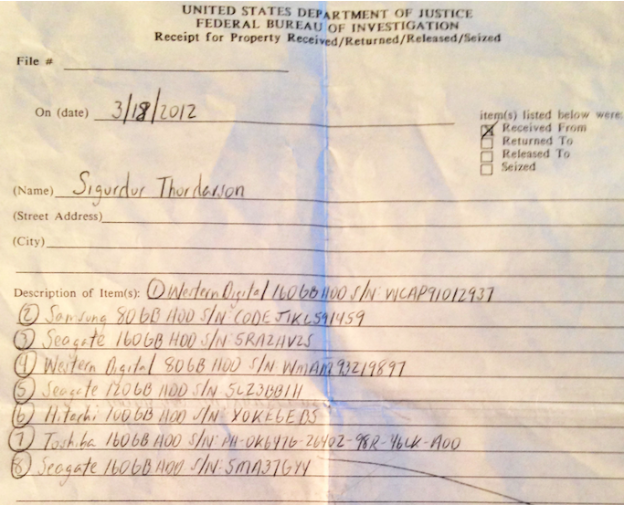 UNITED STATES DEPARTMENT OF JUSTICE
FEDERAL BUREAU OF INVESTIGATION
Receipt for Property Received/Returned/Released/Seized
File #
On (date) 3/18/2012
item(s) listed below were:
Received From
Returned To
Released To
Seized
(Name) Sigurdur Thordarson
(Street Address)
(City)
Description of Item(s): ① Western Digital 160GB HDD S/N: WCAP91012937
② Samsung 80GB HDD S/N CODE
③ Seagate 160GB HDD S/N:
④ Western Digital 80GB HDD S/N:
⑤ Seagate 120GB HDD S/N
⑥ Hitachi 100GB HDD S/N:
⑦ Toshiba 160GB HDD S/N:
⑧ Seagate 160GB HDD S/N: